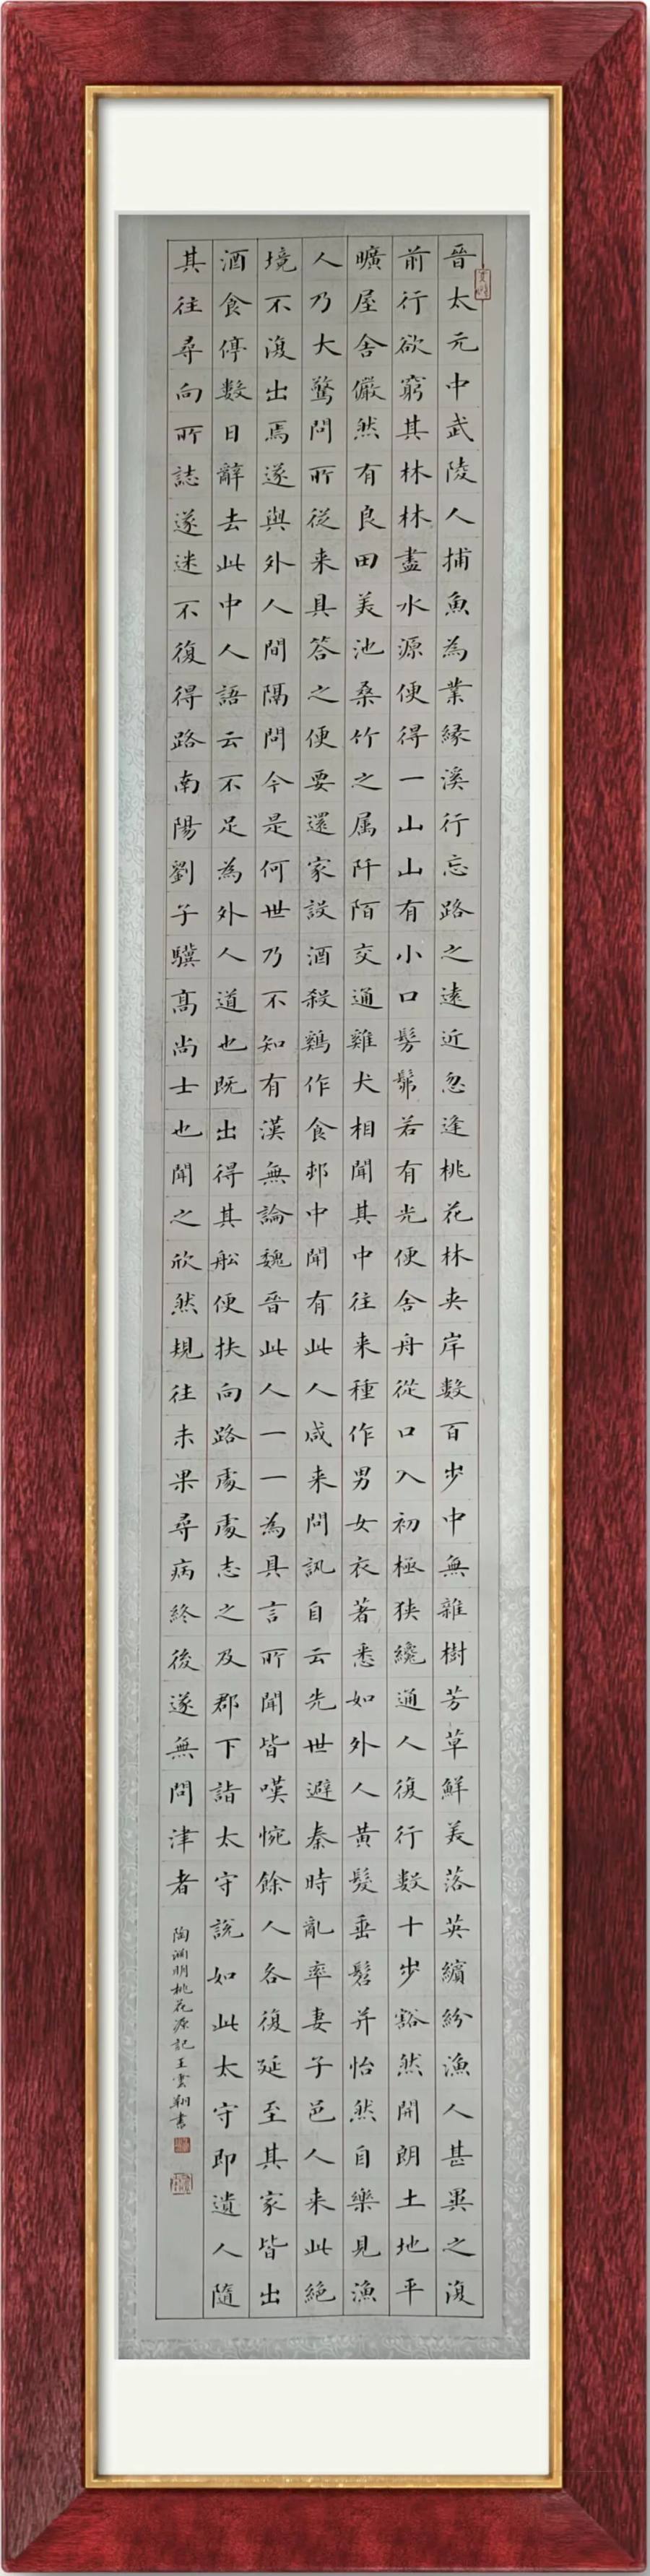 晉太元中武陵人捕魚為業緣溪行忘路之遠近忽逢桃花林夾岸數百步中無雜樹芳草鮮美落英繽紛漁人甚異之復
前行欲窮其林林盡水源便得一山山有小口髣髴若有光便舍舟從口入初極狹纔通人復行數十步豁然開朗土地平
曠屋舍儼然有良田美池桑竹之属阡陌交通雞犬相聞其中往来種作男女衣著悉如外人黃髮垂髫并怡然自樂見漁
人乃大驚問所從来具答之便要還家設酒殺鷄作食邨中聞有此人咸来問訊自云先世避秦時亂率妻子邑人来此絕
境不復出焉遂與外人間隔問今是何世乃不知有漢無論魏晉此人一一為具言所聞皆嘆惋餘人各復延至其家皆出
酒食停數日辭去此中人語云不足為外人道也既出得其舩便扶向路處處志之及郡下詣太守說如此太守即遣人隨
其往尋向所誌遂迷不復得路南陽劉子驥高尚士也聞之欣然規往未果尋病終後遂無問津者
陶淵明桃花源記王雲翔書